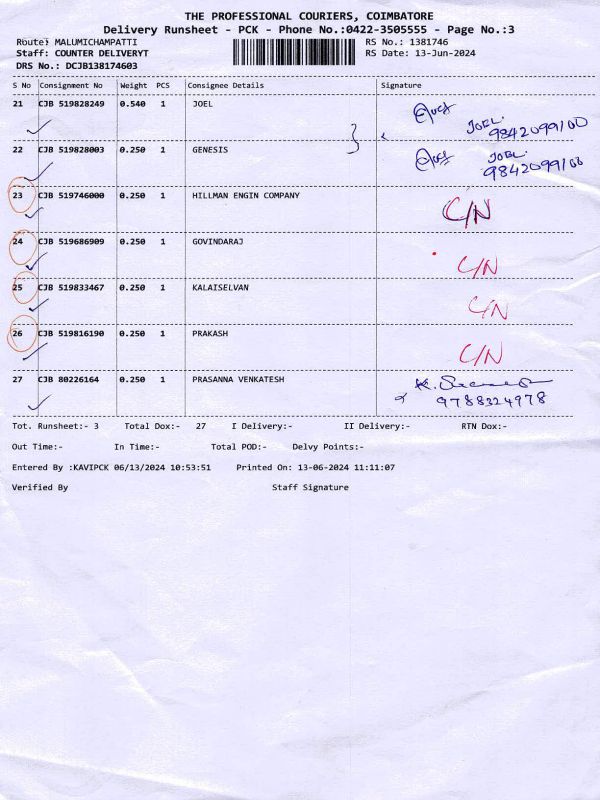 THE PROFESSIONAL COURIERS, COIMBATORE
Delivery Runsheet - PCK - Phone No.:0422-3505555 - Page No.:3
Route: MALUMICHAMPATTI RS No.: 1381746
Staff: COUNTER DELIVERYT RS Date: 13-Jun-2024
DRS No.: DCJB138174603
S No Consignment No Weight PCS Consignee Details Signature
21 CJB 519828249 0.540 1 JOEL JOEL. 9842099100
22 CJB 519828003 0.250 1 GENESIS JOEL 9842099100
23 CJB 519746000 0.250 1 HILLMAN ENGIN COMPANY C/N
24 CJB 519686909 0.250 1 GOVINDARAJ C/N
25 CJB 519833467 0.250 1 KALAISELVAN C/N
26 CJB 519816190 0.250 1 PRAKASH C/N
27 CJB 80226164 0.250 1 PRASANNA VENKATESH 9788324978
Tot. Runsheet:- 3 Total Dox:- 27 I Delivery:- II Delivery:- RTN Dox:-
Out Time:- In Time:- Total POD:- Delvy Points:-
Entered By :KAVIPCK 06/13/2024 10:53:51 Printed On: 13-06-2024 11:11:07
Verified By Staff Signature